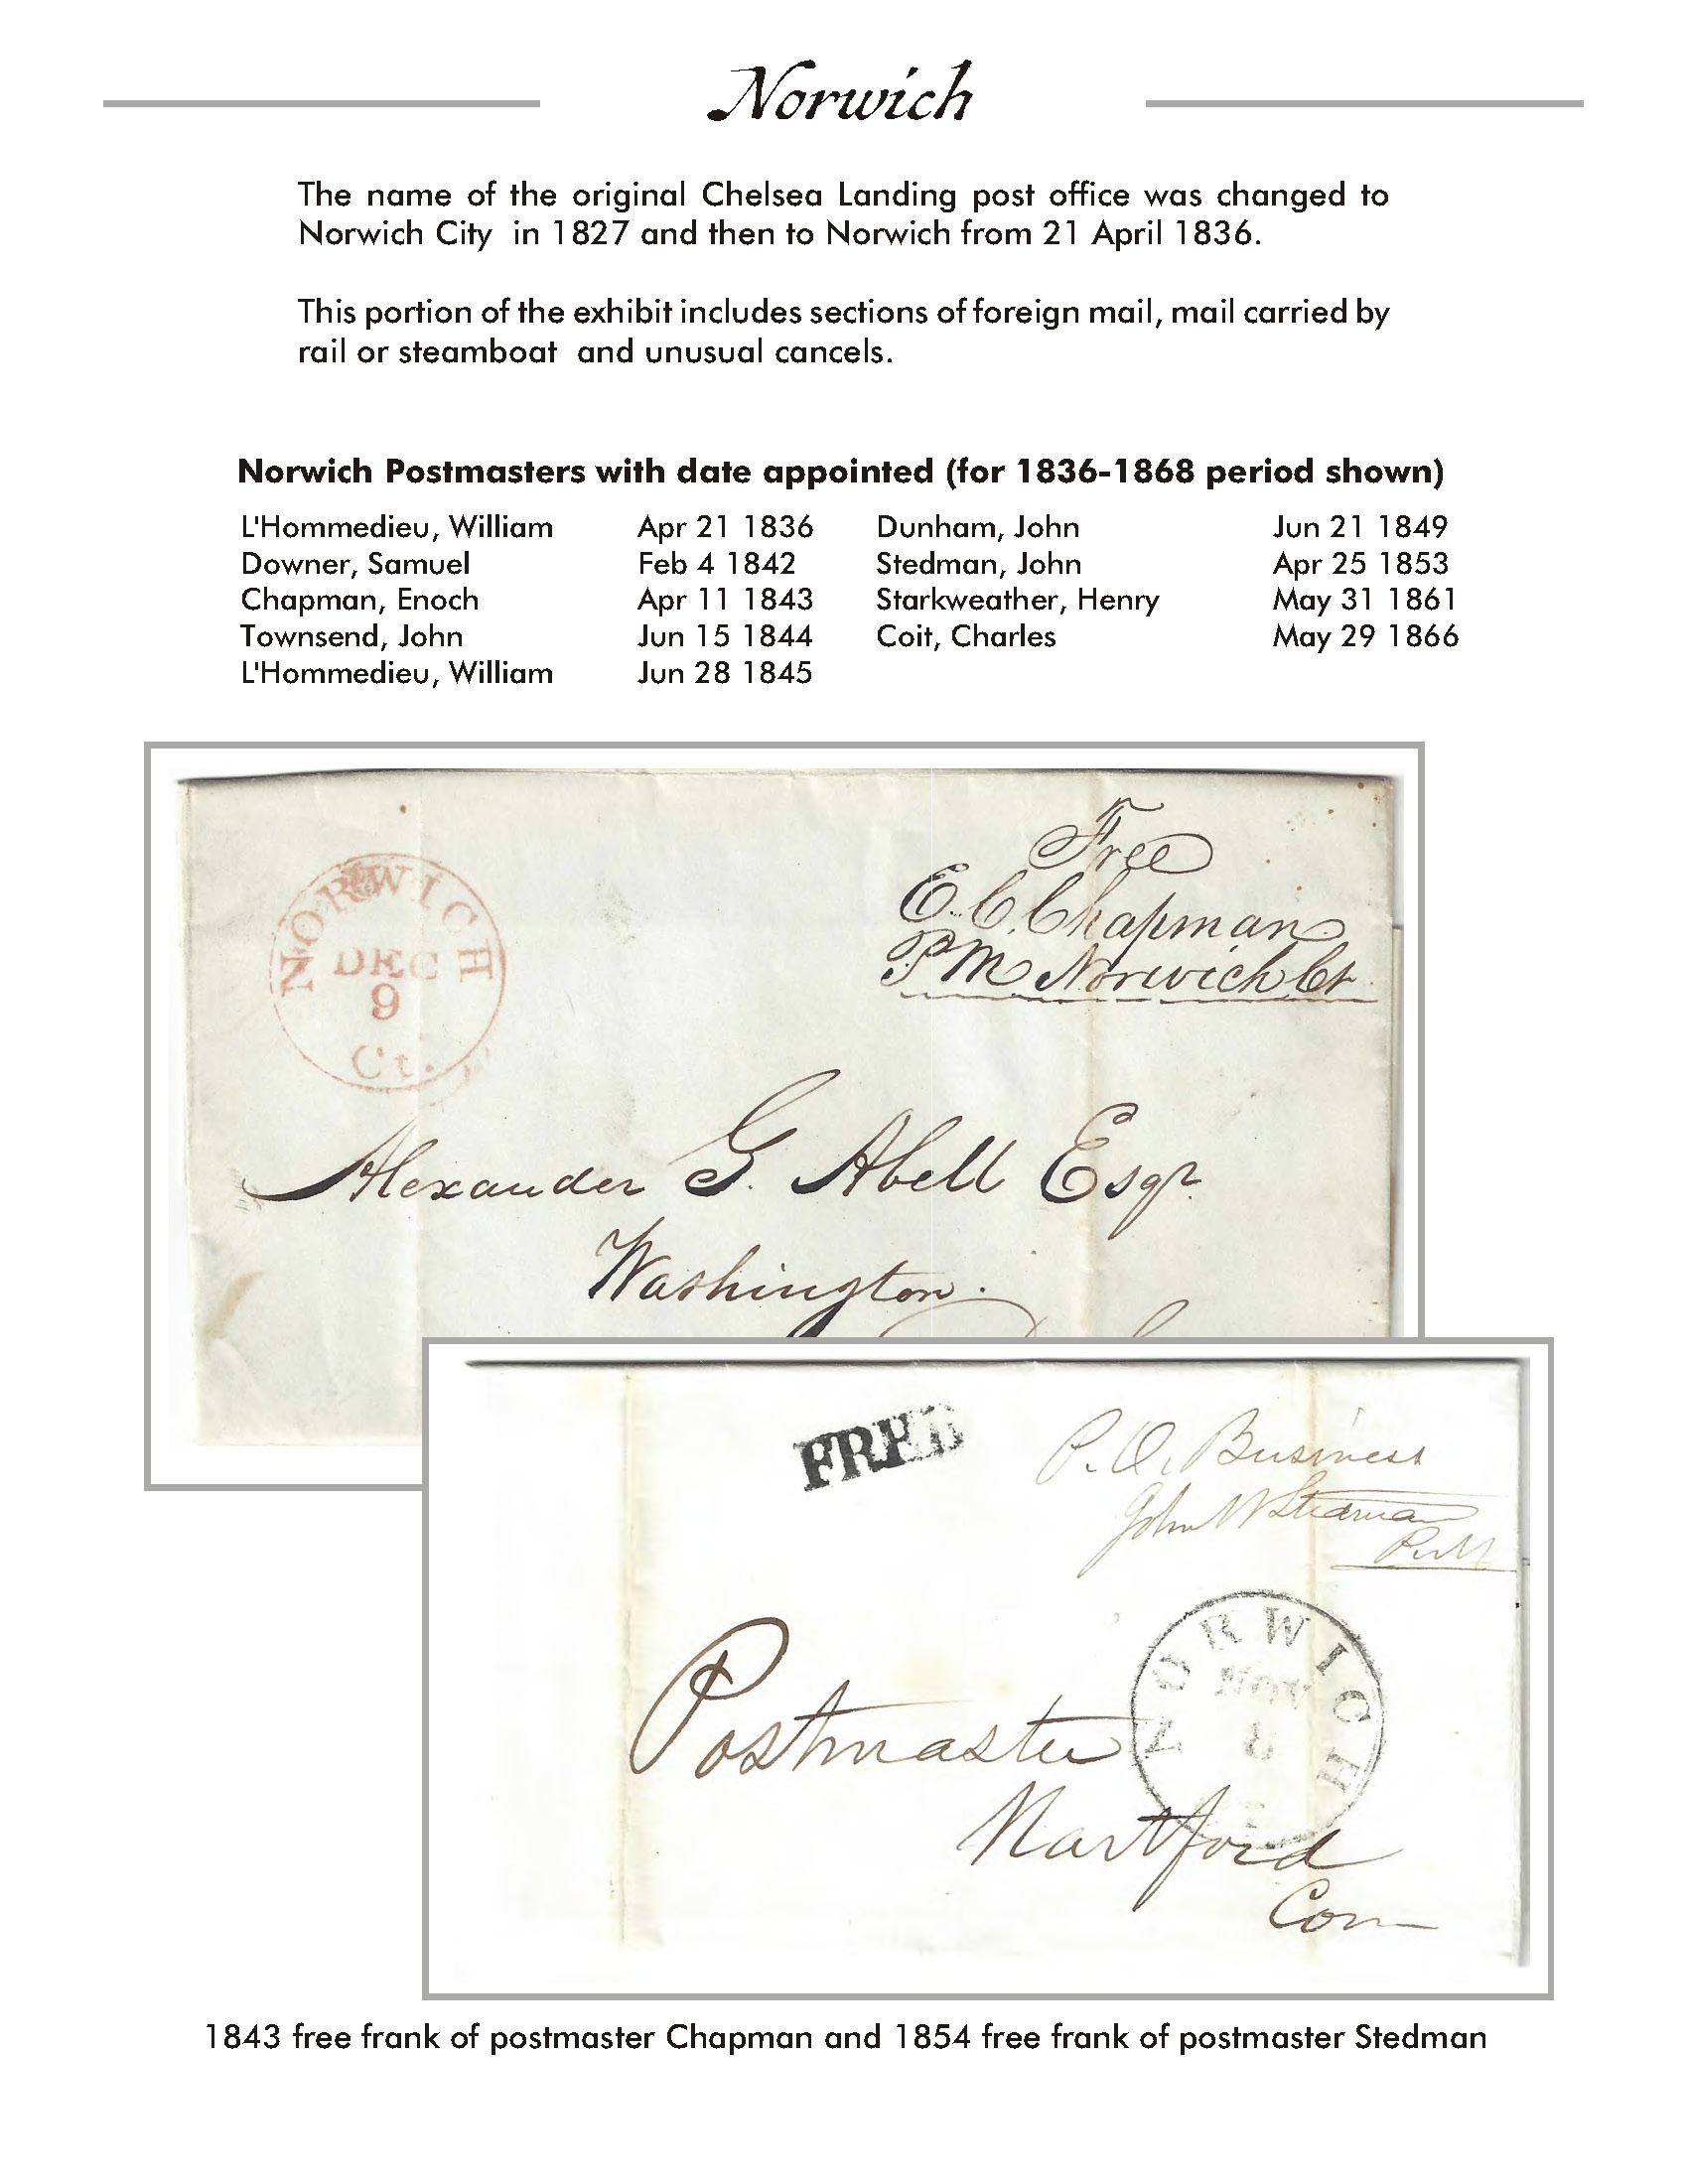 Norwich
The name of the original Chelsea Landing post office was changed to
Norwich City in 1827 and then to Norwich from 21 April 1836.
This portion of the exhibit includes sections of foreign mail, mail carried by
rail or steamboat and unusual cancels.
Norwich Postmasters with date appointed (for 1836-1868 period shown)
L'Hommedieu, William Apr 21 1836 Dunham, John Jun 21 1849
Downer, Samuel Feb 4 1842 Stedman, John Apr 25 1853
Chapman, Enoch Apr 11 1843 Starkweather, Henry May 31 1861
Townsend, John Jun 15 1844 Coit, Charles May 29 1866
L'Hommedieu, William Jun 28 1845
Free
E. C. Chapman
PM Norwich Ct.
NORWICH
DEC
9
Ct.
Alexander G. Abell Esqr.
Washington.
FREE
P. O. Business
John W Stedman
P.M
NORWICH
NOV
8
Postmaster
Hartford
Con
1843 free frank of postmaster Chapman and 1854 free frank of postmaster Stedman